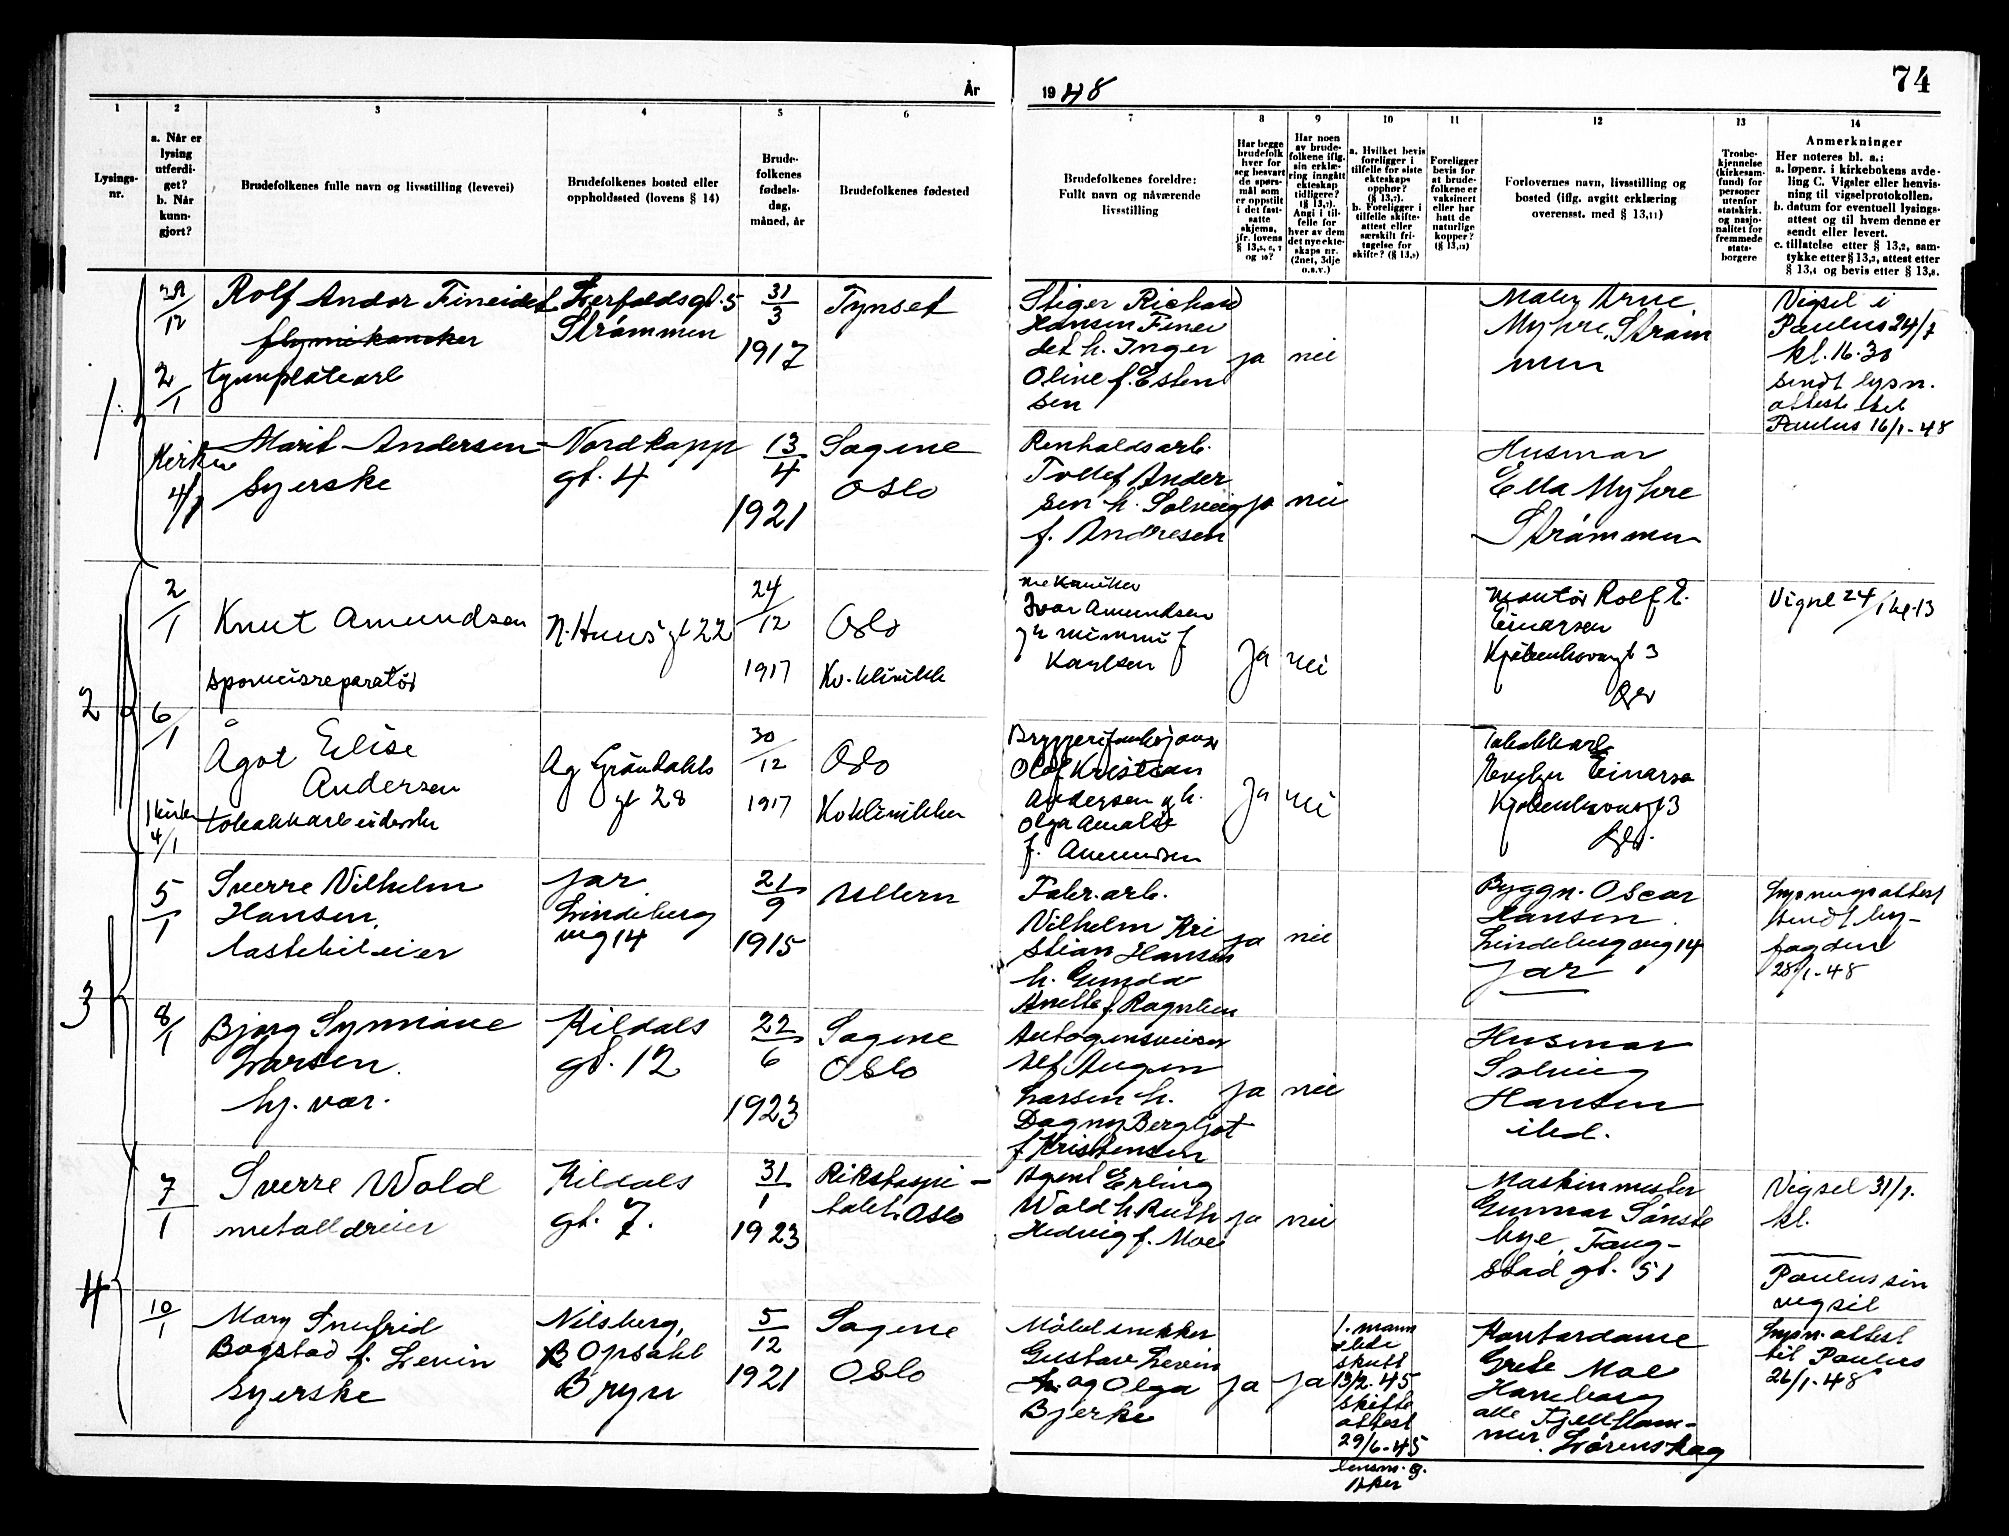 74
År
19 48
1
2
3
4
5
6
7
8
9
10
11
12
13
14
Lysings-
nr.
a. Når er
lysing
utferdi-
get?
b. Når
kunn-
gjort?
Brudefolkenes fulle navn og livsstilling (levevei)
Brudefolkenes bosted eller
oppholdssted (lovens § 14)
Brude-
folkenes
fødsels-
dag,
måned, år
Brudefolkenes fødested
Brudefolkenes foreldre:
Fullt navn og nåværende
livsstilling
Har begge
brudefolk
hver for
seg besvart
de spørs-
mål som
er oppstilt
i det fast-
satte
skjema,
jfr. lovens
Har noen
av brude-
folkene iflg.
sin erklæ-
ring inngått
ekteskap
tidligere?
(§ 13,7).
Angi i til-
felle for
hver av dem
det nye ekte-
skaps nr.
(2net, 3dje
o.s.v.)
a. Hvilket bevis
foreligger i
tilfelle for siste
ekteskaps
opphør?
(§ 13,7).
b. Foreligger i
tilfelle skifte-
attest eller
særskilt fri-
tagelse for
skifte? (§ 13,9)
Foreligger
bevis for
at brude-
folkene er
vaksinert
eller har
hatt de
naturlige
kopper?
(§ 13,12)
Forlovernes navn, livsstilling og
bosted (iflg. avgitt erklæring
overensst. med § 13,11)
Trosbe-
kjennelse
(kirkesam-
fund) for
personer
utenfor
statskirk.
og nasjo-
nalitet for
fremmede
stats-
borgere
Anmerkninger
Her noteres bl. a.:
a. løpenr. i kirkebokens avde-
ling C. Vigsler eller henvis-
ning til vigselprotokollen.
b. datum for eventuell lysings-
attest og til hvem denne er
sendt eller levert.
c. tillatelse etter § 13,2, sam-
tykke etter § 13,3, attest etter
§ 13,4 og bevis etter § 13,8.
1
29/12
2/1
Rolf Andor Fineidet
flymekaniker
tynnplatearb
Lerfaldsgt. 5
Strømmen
31/3
1917
Tynset
Stiger Richard
Hansen Finei
det h. Inger
Oline f. Esten
sen
ja
nei
Maler Arne
Myhre, Strøm
men
Vigsel i
Paulus 24/1
kl. 16.30
sendt lysn.
attest til
Paulus 16/1-48
Kirken
4/1
Marit Andersen
syerske
Nordkapp
gt. 4
13/4
1921
Sagene
Oslo
Renholdsarb.
Tollef Ander
sen h. Solveig
f. Andresen
ja
nei
Husmor
Ella Myhre
Strømmen
2
2/1
6/1
Knut Amundsen
sporveisreparatør
N. Huus gt 22
24/12
1917
Oslo
Kv. klinikk
mekaniker
Ivar Amundsen
gh Mimmi f
Karlsen
ja
nei
montør Rolf E.
Einarsen
Kjøbenhavngt 3
Oslo
Vigsel 24/1 kl. 13
i kirken
4/1
Ågot Elise
Andersen
tobakkarbeiderske
Ag Grøndahls
gt 28
30/12
1917
Oslo
Kvklinikken
Olaf Kristian
Andersen g h.
Olga Amalie
f. Amundsen
ja
nei
Tobakkarb
Evelyn Einarsen
Kjøbenhavngt 3
Oslo.
3
5/1
Sverre Vilhelm
Hansen,
lastebileier
Jar
Lindeberg
veg 14
21/9
1915
Ullern
Fabr. arb.
Vilhelm Kri
stian Hansen
h. Gunda
Anette f. Ragnhen
ja
nei
Byggn. Oscar
Hansen.
Lindeberg veg 14
Jar
Lysningsattest
sendt by-
fogden
28/1-48
8/1
Bjørg Synnøve
Larsen.
hj. vær.
Kildals
gt. 12
22/6
1923
Sagene
Oslo
Autogensveiser
Alf Augon
Larsen h.
Dagny Bergljot
f Kristensen
ja
nei
Husmor
Solveig
Hansen
ibid.
4
7/1
Sverre Wold
metalldreier
Kildals
gt. 7.
31/1
1923
Rikshospi-
talet. Oslo
Agent Erling
Wold h Ruth
Hedvig f. Moe
ja
nei
Maskinmester
Gunnar Sønste
bye, Fang-
stad gt. 51
Vigsel 31/1.
kl.
Paulus sin
vigsel
10/1
Mary Snefrid
Bogstad f. Levin
syerske
Nilsberg,
B Opsahl
Bryn
5/12
1921
Sagene
Oslo
Møbelsnekker
Gustav Levin
og Olga
Bjerke
ja
ja
1. mann
døde
skutt
13/2.45
skifte
attest
29/6-45
lensm. g.
Aker
Kontordame
Grete Moe
Haneborg
alle Fjellham-
mer. Lørenskog
Lysn. attest
til Paulus
26/1-48